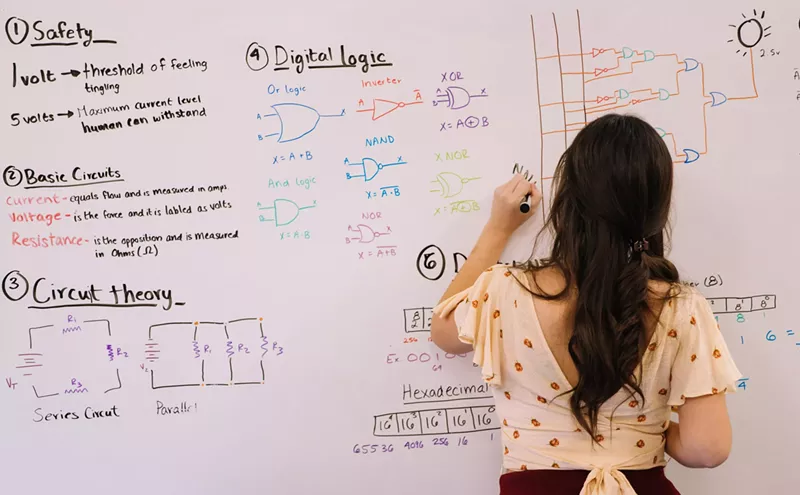 ① Safety
1 volt → threshold of feeling
tingling
5 volts → Maximum current level
human can withstand
② Basic Circuits
Current - equals flow and is measured in amps
Voltage - is the force and it is labled as volts
Resistance - is the opposition and is measured
in Ohms (Ω)
③ Circut theory
R₁
R₂
R₃
V_T
Series Circut
R₁
R₂
R₃
Parallel
④ Digital logic
Or logic
A
B
X
X = A + B
Inverter
A
A̅
XOR
A
B
X = A ⊕ B
And logic
A
B
X = A · B
NAND
A
B
X
X = A̅ ·̅ B̅
X NOR
X = A̅ ⊕̅ B̅
NOR
X = A̅ +̅ B̅
2.5v
(8)
8¹ 8⁰
8 1
1 6 =
Ex. 00
64
Hexadecimal
16⁴ 16³ 16² 16¹ 16⁰
65536 4096 256 16 1